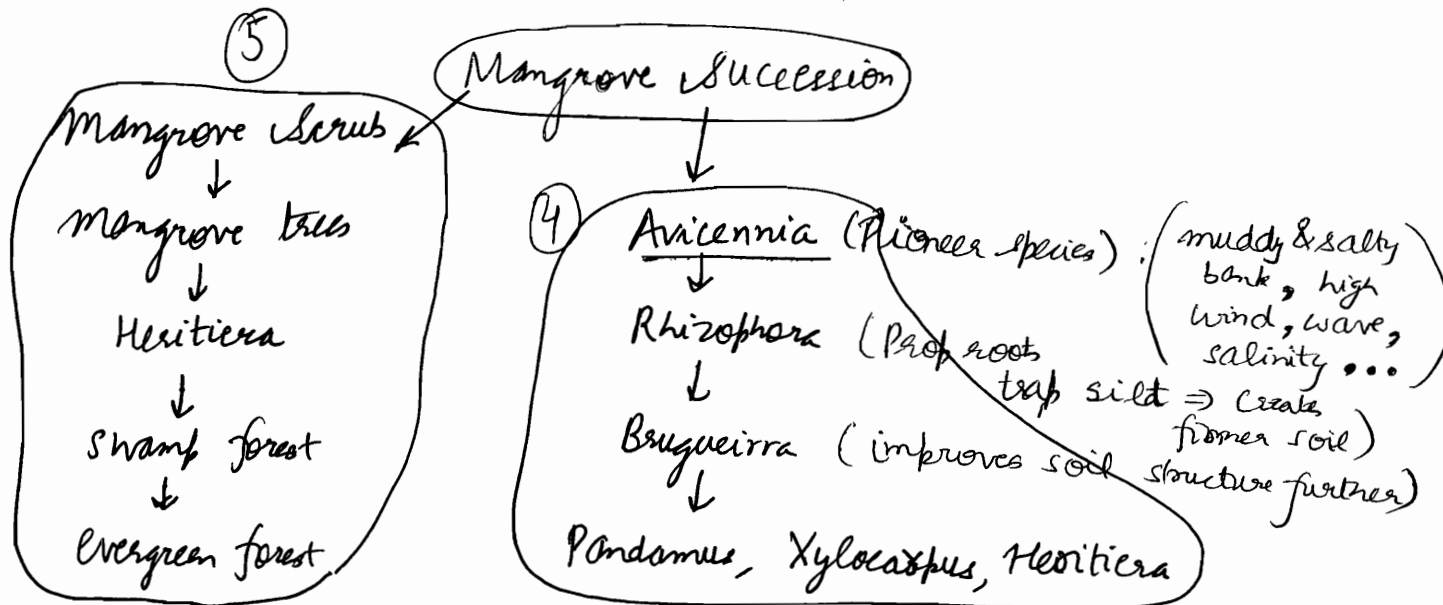 5
Mangrove Sucession
Mangrove Scrub
↓
Mangrove trees
↓
Heritiera
↓
Swamp forest
↓
evergreen forest
4
Avicennia (Pioneer species) : (muddy & salty
bank, high
wind, wave,
salinity ...)
↓
Rhizophora (Prop roots
trap silt ⇒ create
firmer soil)
↓
Brugueirra (improves soil structure further)
↓
Pandamus, Xylocarpus, Heritiera